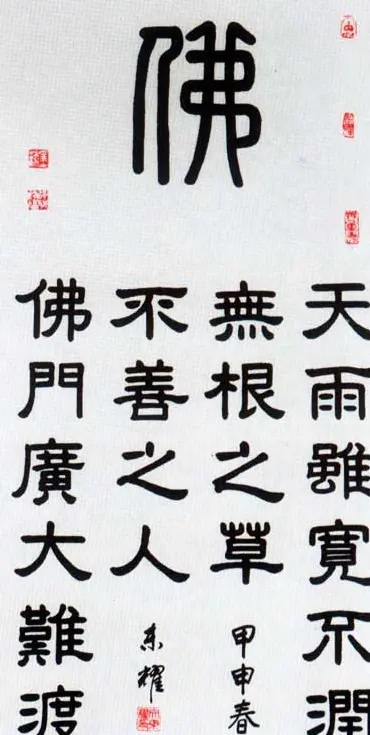 佛
天雨雖寬不潤
無根之草
甲申春
佛門廣大難渡
不善之人
东耀